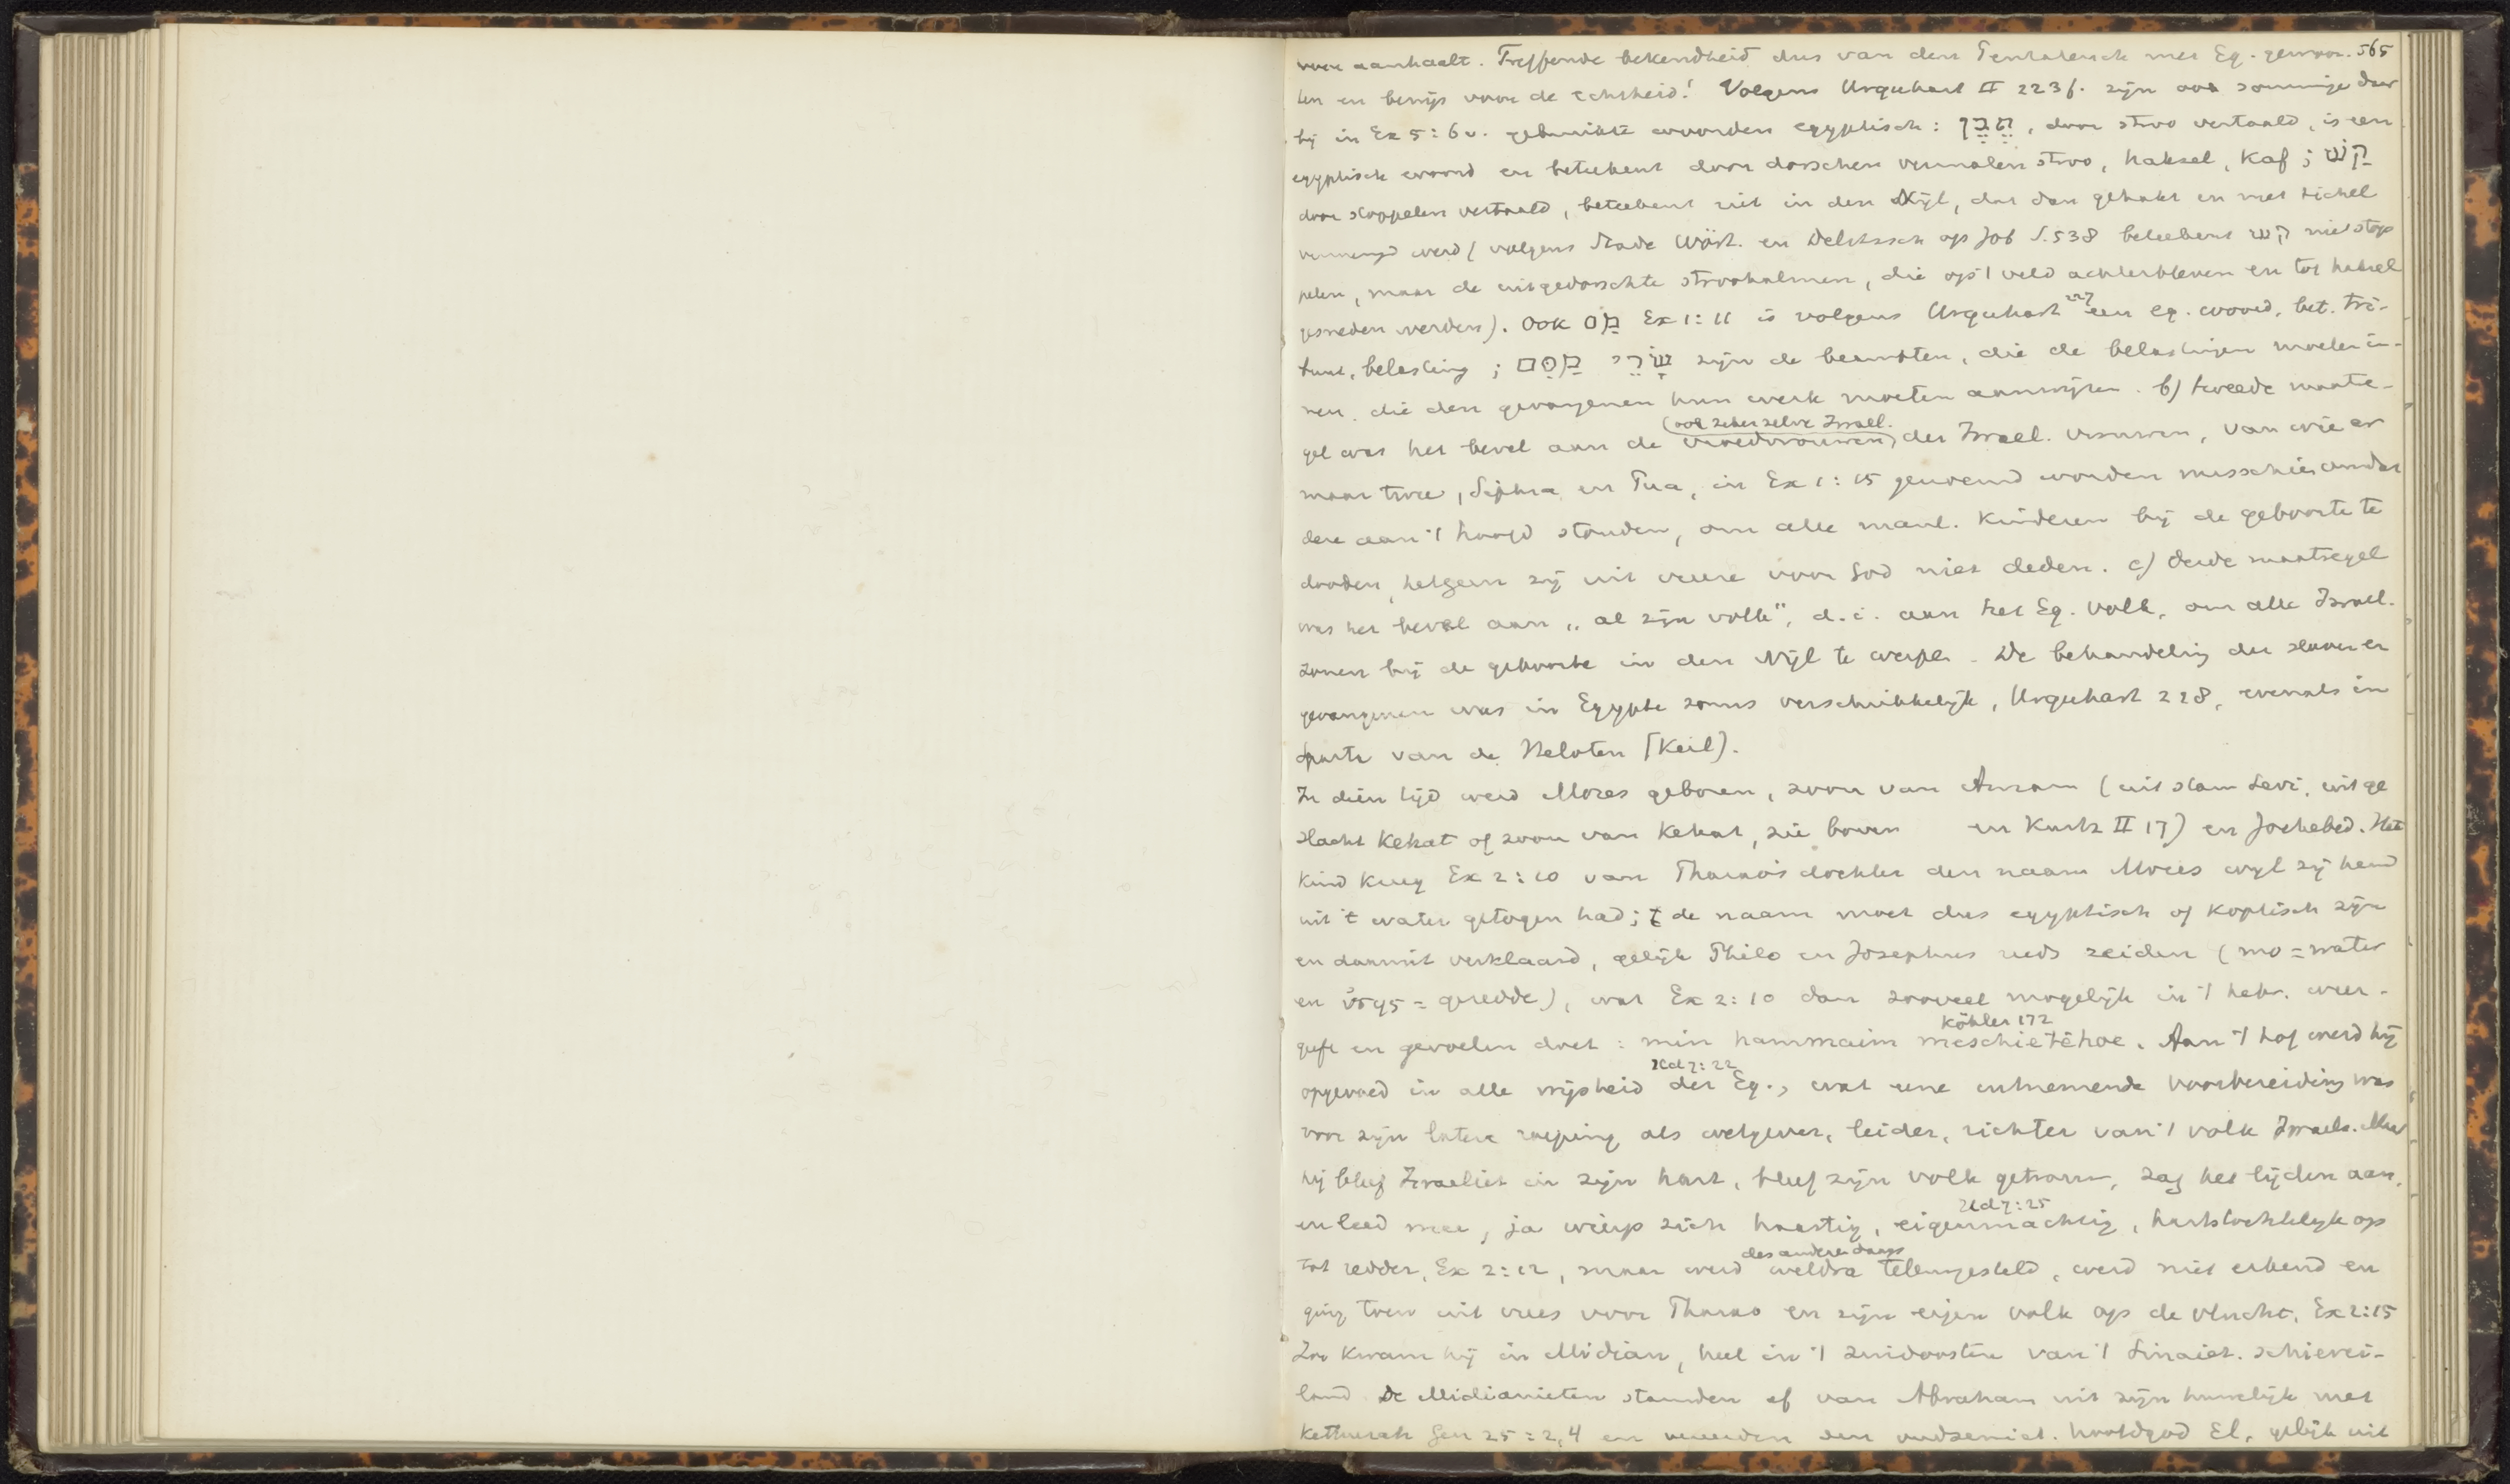 aanhaalt. Treffende bekendheid dus van den Pentateuch met Eg. gewoon- 565
ten en bewijs voor de echtheid! Volgens Urquhart II 223 f. zijn ook sommige daar
bij in Ex 5:6 v. gebruikte woorden egyptisch: תֶּבֶן, door stroo vertaald, is een
egyptisch woord en beteekent door dorschen vermalen stroo, haksel, kaf; קַשׁ
door stoppelen vertaald, beteekent riet in den Nijl, dat dan gehakt en met tichel
vermengd werd (volgens Stade Wört. en Delitzsch op Job S. 538 beteekent קַשׁ niet stop
pelen, maar de uitgedorschte stroohalmen, die op 't veld achterbleven en tot haksel
gesneden werden). Ook מַס Ex 1:11 is volgens Urquhart 227 een eg. woord, bet. tri-
buut, belasting; שָׂרֵי מִסִּים zijn de beambten, die de belastingen moeten in-
nen, die den gevangenen hun werk moeten aanwijzen. b) tweede maatre-
gel was het bevel aan de vroedvrouwen (ook zeker zelve Israel.) der Israel. vrouwen, van wie er
maar twee, Siphra en Pua, in Ex 1:15 genoemd worden misschien omdat
deze aan 't hoofd stonden, om alle manl. kinderen bij de geboorte te
dooden, hetgeen zij uit vreeze voor God niet deden. c) derde maatregel
was het bevel aan „al zijn volk", d.i. aan het Eg. volk, om alle Israel.
zonen bij de geboorte in den Nijl te werpen. De behandeling der slaven en
gevangenen was in Egypte soms verschrikkelijk, Urquhart 228, evenals in
Sparta van de Heloten (Keil).
In dien tijd werd Mozes geboren, zoon van Amram (uit stam Levi, uit ge
slacht Kehat of zoon van Kehat, zie boven en Kurtz II 17) en Jochebed. Het
kind kreeg Ex 2:10 van Pharao's dochter den naam Mozes wijl zij hem
uit 't water getogen had; de naam moet dus egyptisch of koptisch zijn
en daaruit verklaard, gelijk Philo en Josephus reeds zeiden (mo = water
en = geredde), wat Ex 2:10 dan zooveel mogelijk in 't hebr. weer-
geeft en gevoelen doet: min hammaim meschietêhoe. Köhler 172 Aan 't hof werd hij
opgevoed in alle wijsheid der Eg., Hd 7:22 wat eene uitnemende voorbereiding was
voor zijn latere roeping als wetgever, leider, richter van 't volk Israels. Maar
hij bleef Israeliet in zijn hart, bleef zijn volk getrouw, zag het lijden aan,
en leed mee, ja wierp zich haastig, eigenmachtig, Hd 7:25 hartstochtelijk op
tot redder, Ex 2:12, maar werd weldra des anderen daags teleurgesteld, werd niet erkend en
ging toen uit vrees voor Pharao en zijn eigen volk op de vlucht, Ex 2:15
Zoo kwam hij in Midian, heel in 't zuidoosten van 't Sinaiet. schierei-
land. De Midianieten stamden af van Abraham uit zijn huwelijk met
Kethurah Gen 25:2,4 en den oudsemiet. hoofdgod El, gelijk uit